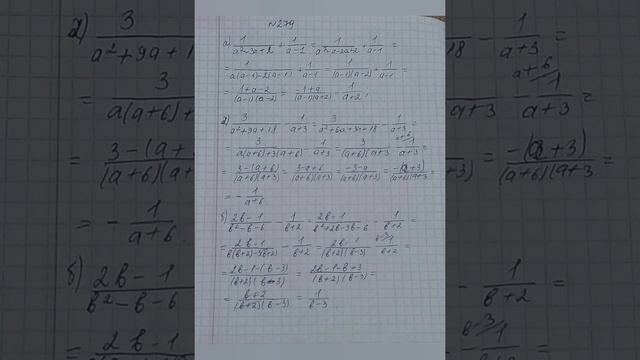 N 279
а) 1/(a²-3a+2) + 1/(a-1) = 1/(a²-a-2a+2) + 1/(a-1) =
= 1/(a(a-1)-2(a-1)) + 1/(a-1) = 1/((a-1)(a-2)) + 1/(a-1) =
= (1+a-2)/((a-1)(a-2)) = (-1+a)/((a-1)(a+2)) = 1/(a+2)
3/(a²+9a+18) - 1/(a+3) = 3/(a²+6a+3a+18) - 1/(a+3) =
= 3/(a(a+6)+3(a+6)) - 1/(a+3) = 3/((a+6)(a+3)) - 1/(a+3) a+6 =
= (3-(a+6))/((a+6)(a+3)) = (3-a+6)/((a+6)(a+3)) = (-3-a)/((a+6)(a+3)) = (-(a+3))/((a+6)(a+3)) =
= - 1/(a+6)
б) (2в-1)/(в²-в-6) - 1/(в+2) = (2в-1)/(в²+2в-3в-6) - 1/(в+2) =
= (2в-1)/(в(в+2)-3(в+2)) - 1/(в+2) = (2в-1)/((в+2)(в-3)) в-3 1/(в+2) =
= (2в-1-(в-3))/((в+2)(в-3)) = (2в-1-в+3)/((в+2)(в-3)) =
= (в+2)/((в+2)(в-3)) = 1/(в-3)